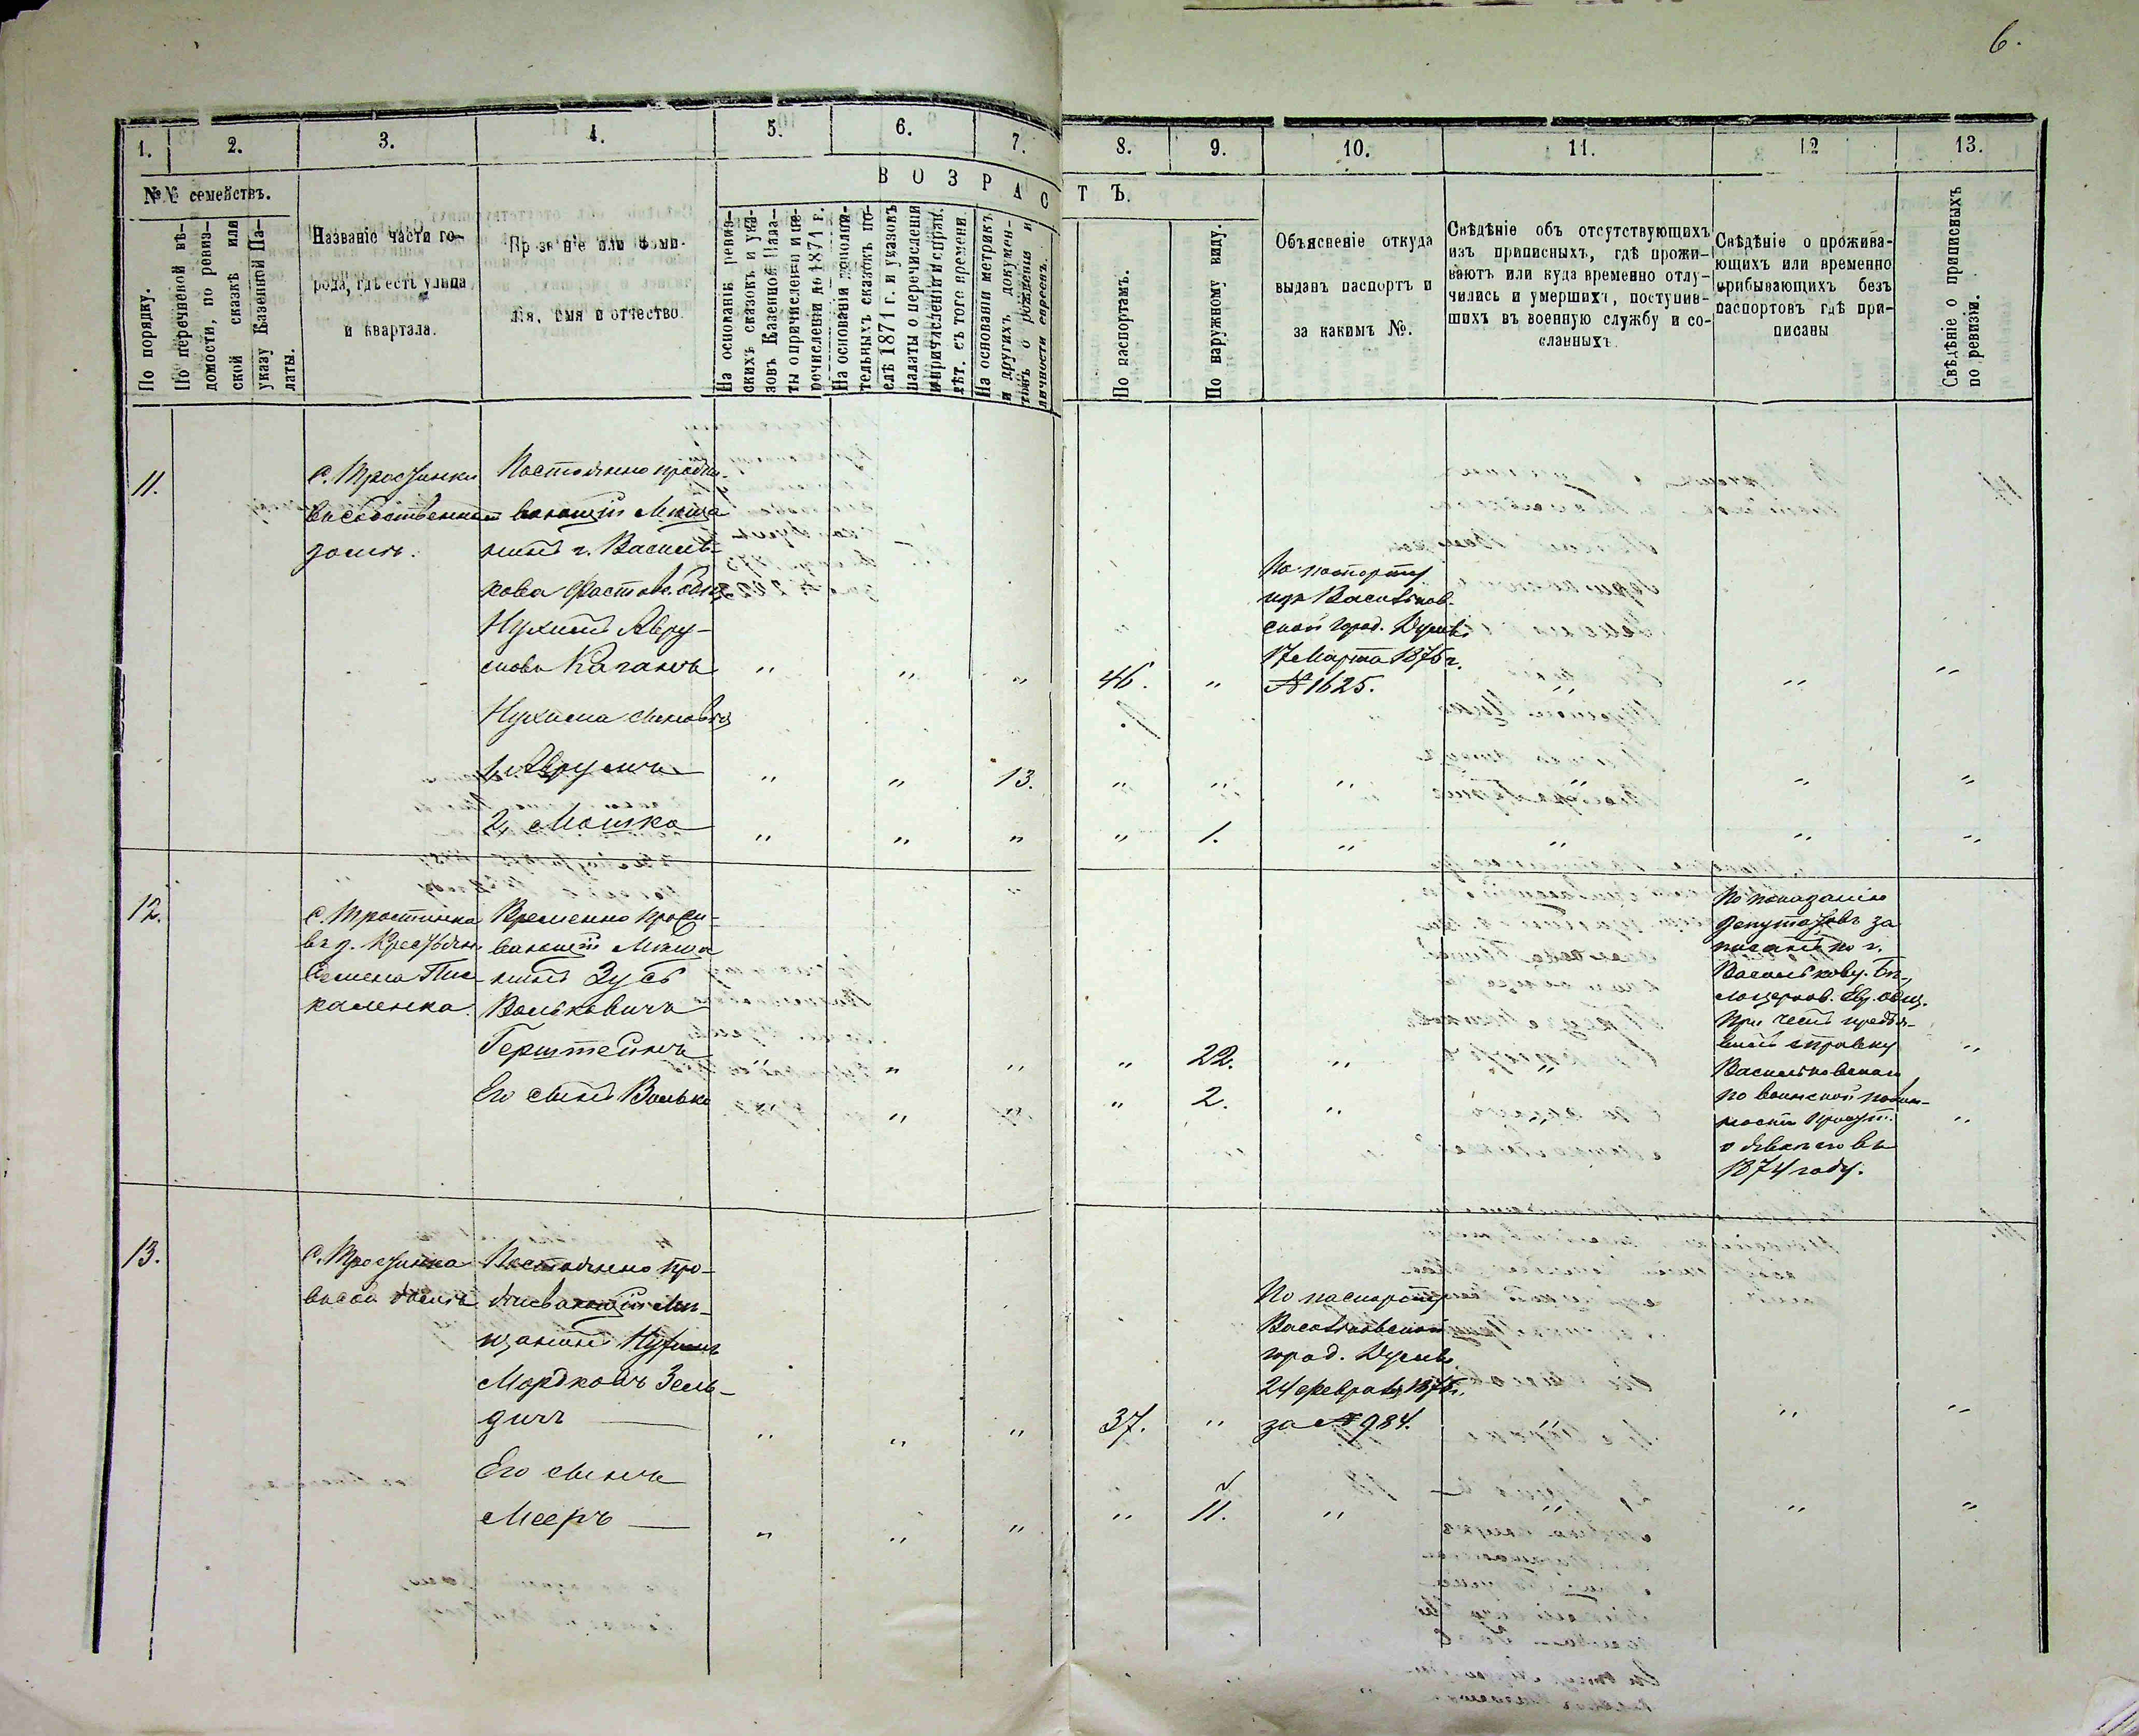 6.
1.
2.
3.
4.
5.
6.
7.
8.
9.
10.
11.
12
13.
№№ семействъ.
ВОЗРАСТЪ.
По порядку.
По перечневой вѣ-
домости, по ревиз-
ской сказкѣ или
указу Казенной Па-
латы.
Названіе части го-
рода, гдѣ есть улица
и квартала.
Прозваніе или фами-
лія, имя и отчество.
На основаніи ревиз-
скихъ сказокъ и ука-
зовъ Казенной Пала-
ты о причисленіи и пе-
речисленіи до 1871 г.
На основаніи дополни-
тельныхъ сказокъ по-
слѣ 1871 г. и указовъ
палаты о перечисленіи
и причисленіи и справ.
лѣт. съ того времени.
На основаніи метрикъ
и другихъ докумен-
товъ о рожденіи и
личности евреевъ.
По паспортамъ.
По наружному виду.
Объясненіе откуда
выданъ паспортъ и
за какимъ №.
Свѣдѣніе объ отсутствующихъ
изъ приписныхъ, гдѣ прожи-
ваютъ или куда временно отлу-
чились и умершихъ, поступив-
шихъ въ военную службу и со-
сланныхъ.
Свѣдѣніе о прожива-
ющихъ или временно
прибывающихъ безъ
паспортовъ гдѣ при-
писаны
Свѣдѣніе о приписныхъ
по ревизіи.
11.
с. Тростинки
въ собственном
домѣ.
Постоянно прожи-
вающій Мѣща
нинъ г. Василь-
кова Фастов. общ.
Нухимъ Авру-
мовъ Каганъ " " " 46. "
По паспорту
изъ Васильков-
ской город. Думы
17 Марта 1876 г.
№ 1625. " "
Нухима сыновья
1, Аврумъ " " 13. " " " " " "
2, Мошко " " " " 1. " " " "
12.
с. Тростинка
въ д. Крестьян.
Семена Пис
каленка
Временно прожи-
вающій Мѣща
нинъ Зусь
Вольковичъ
Герштейнъ " " " 22. " "
Его сынъ Волько " " 2. " "
По показанію
депутатовъ за
писанъ по г.
Василькову. Бѣ-
лоцерков. Евр. общ.
При чемъ предъя-
вилъ справку
Васильковскаго
по воинской повин-
ности Присут.
о явкѣ его въ
1874 году.
13.
с. Тростинка
въ соб домѣ
Постоянно про-
живающій Мѣ-
щанинъ Нухимъ
Мордковъ Зель-
дичъ — " " " 37. "
По паспорту
Васильковской
город. Думы
24 февраля 1876 г.
за № 984. " "
Его сынъ
Мееръ — " " " " 11. " " " "